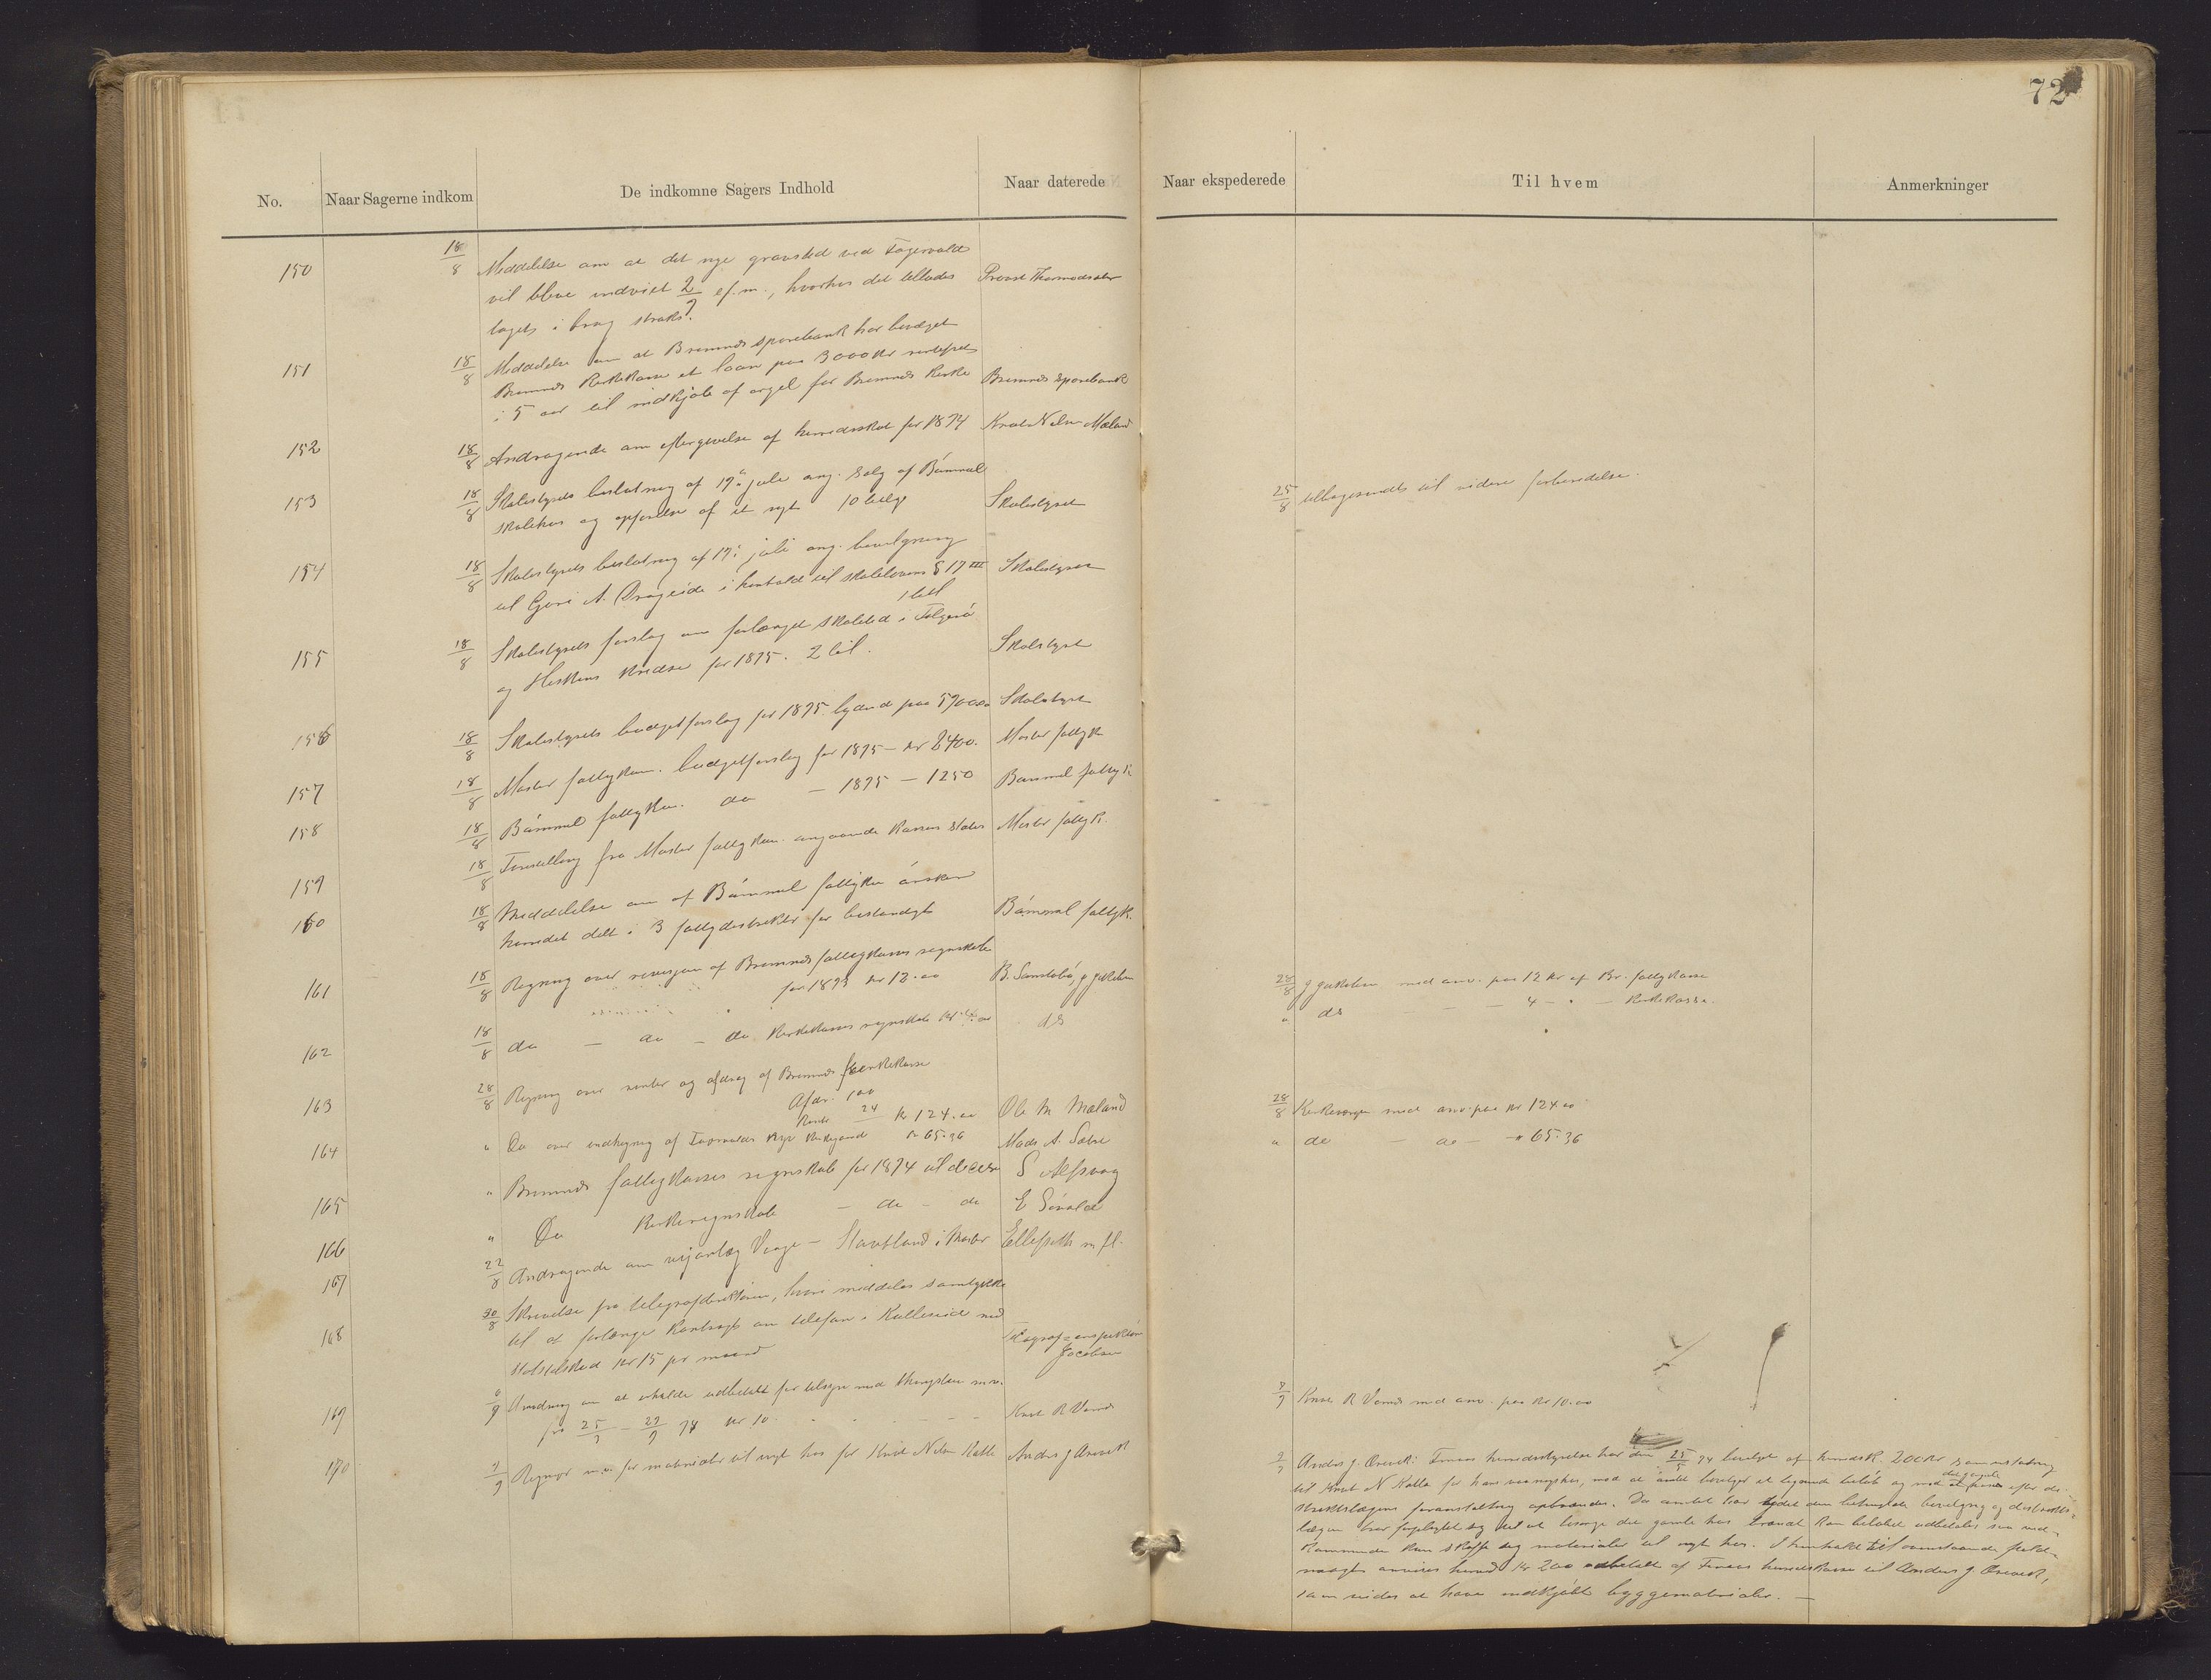 72
No. Naar Sagerne indkom De indkomne Sagers Indhold Naar daterede Naar ekspederede Til hvem Anmerkninger
150 18/8 Meddelelse om at det nye gravsted ved
vil blive indviet 2/9 ef. m., hvorhos det tillades Provst
taget i brug straks.
151 18/8 Meddelelse om at Bremnes sparebank har bevilget
Bremnes Kirkekasse et laan paa 3000 Kr rentefrit
i 5 aar til indkjøb af orgel for Bremnes Kirke Bremnes sparebank
152 18/8 Andragende om eftergivelse af herredsskat for 1894 Knut Nelsen Mæland
153 18/8 Skolestyrets beslutning af 19. juli ang. salg af Bømmel
skolehus og opførelse af et nyt 10 bilag Skolestyret
25/8 tilbagesendt til videre forberedelse.
154 18/8 Skolestyrets beslutning af 19. juli ang. bevilgning
til A. Drageide i henhold til skolelovens § 17 III Skolestyret
1 bil
155 18/8 Skolestyrets forslag om forlænget skoletid i Folgerø
og Hiskens kredse for 1895. 2 bil. Skolestyret
156 18/8 Skolestyrets budgetforslag for 1895 lydende paa Skolestyret
157 18/8 Moster fattigkom. budgetforslag for 1895 - Kr 2400. Moster fattigk
158 18/8 Bømmel fattigkom. do - 1895 - 1250 Bømmel fattigk
159 18/8 Forestilling fra Moster fattigkom. angaaende kassens status Moster fattigk.
160 18/8 Meddelelse om at Bømmel fattigkom ønsker
herredet delt i 3 fattigdistrikter for bestandigt Bømmel fattigk.
161 18/8 Regning over revisjon af Bremnes fattigkasses regnskab
for 1893 Kr 12.00 B. Sandsbø, J Jakobsen
28/8 J Jakobsen med anv. paa 12 Kr af Br. fattigkasse
162 18/8 do - do - do Kirkekasses regnskab do
" do - - 4 - " - Kirkekasse.
163 28/8 Regning over renter og afdrag af Bremnes Kirkekasse
Afdr. 100
Rente 24 Kr 124.00 Ole M Mæland
28/8 Kirkevergen med anv. paa Kr 124.00
164 " Do over indhegning af nye Kirkegaard Kr 65.36 Mads A.
" do - do - " 65.36
165 " Bremnes fattigkasses regnskab for 1894 til decision S Alfsvaag
166 " Do Kirkeregnskab - do - do E
167 22/8 Andragende om vejanlæg Vaage - Stavland i Moster Ellefseth m. fl.
168 30/8 Skrivelse fra telegrafdirektøren, hvori meddeles samtykke
til at forlænge Kontrakt om telefon i Kulleseid med
Kr 15 pr maaned Telegrafinspektør
Jacobsen
169 6/9 Anmodning om at erholde udbetalt for tilsyn med thingstuen m.v.
fra 25/9 - 29/9 94 Kr 10 Knut R Vernes
8/9 Knut R Vernes med anv. paa Kr 10.00
170 9/9 Regning m.m for materialer til nyt hus for Knut Nelsen Katla Anders J
9/9 Anders J. : Finnaas herredsstyrelse har den 25/5 94 bevilget af herredsk. 200 Kr som erstatning
til Knut N Katla for hans vaaningshus, mod at amtet bevilger et lignende beløb og mod at huset efter di-
det gamle
striktslægens foranstaltning opbrændes. Da amtet har ydet den betingede bevilgning og distrikts-
lægen har forpligtet sig til at besørge det gamle hus brændt kan beløbet udbetales saa ved-
kommende kan skaffe sig materialer til nyt hus. I henhold til ovenstaaende fuld-
magt anvises herved Kr 200 udbetalt af Finnaas herredskasse til Anders J.
som sees at have indkjøbt byggematerialer. -